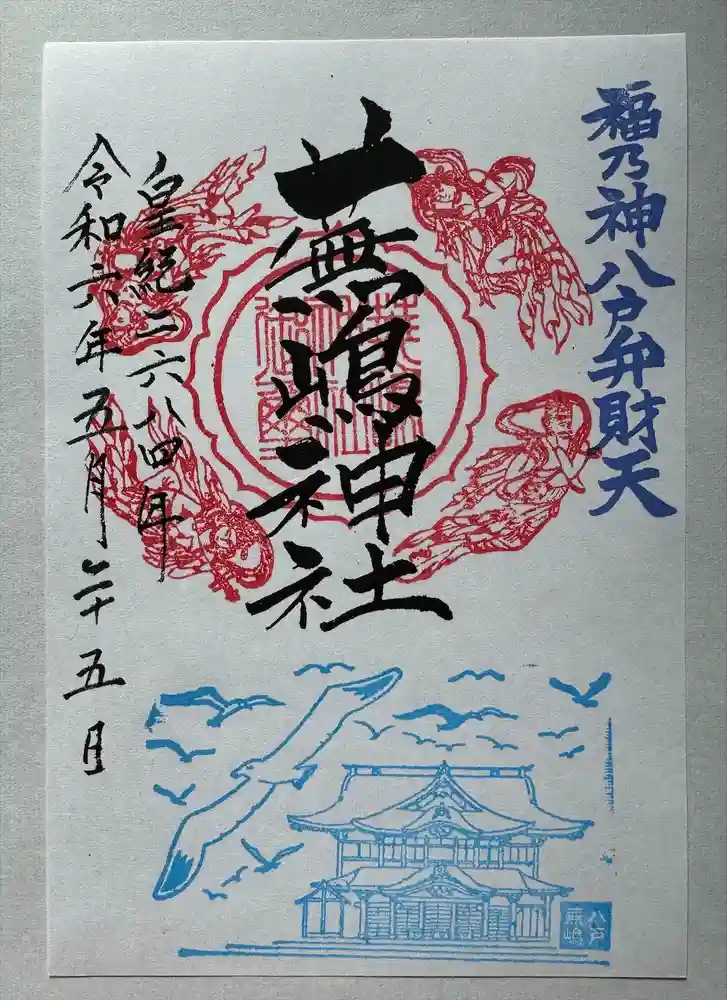 福乃神八戸弁財天
蕪嶋神社
皇紀二六八四年
令和六年五月二十五日
八戸
蕪嶋